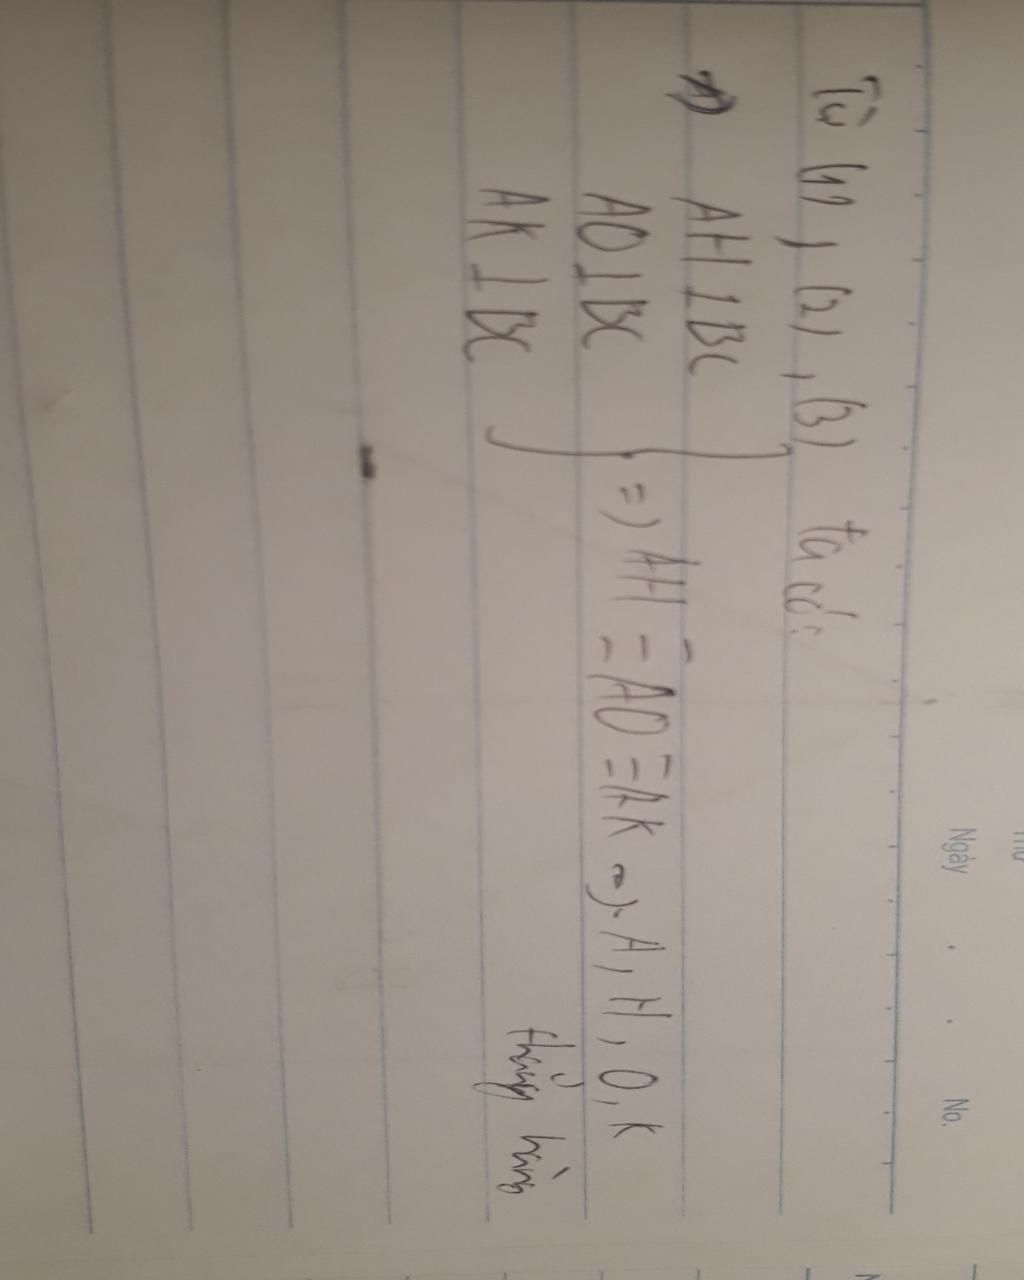 Ngày . . No.
Từ (1), (2), (3) ta có:
=> AH ⊥ BC
AO ⊥ BC } => AH ≡ AO ≡ AK => A, H, O, K
AK ⊥ BC thẳng hàng